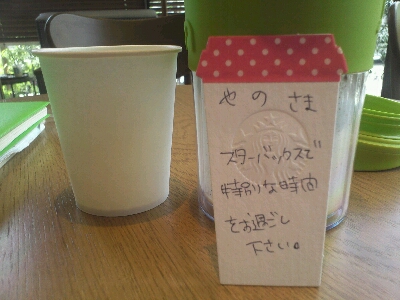 やの さま
スターバックスで
特別な時間
をお過ごし
下さい。